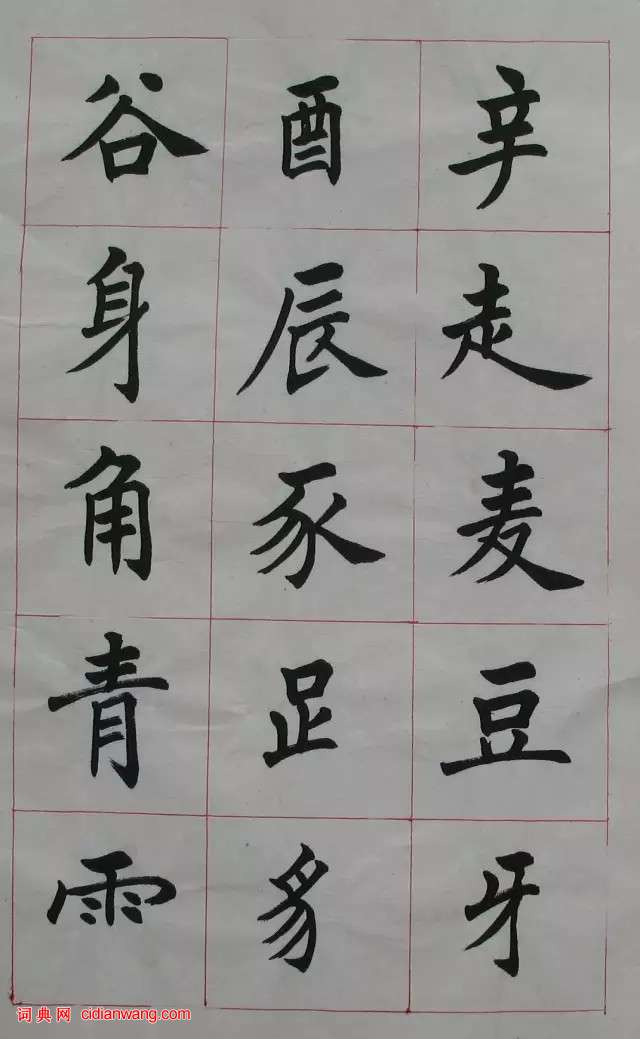 辛走麦豆牙
酉辰豕足豸
谷身角青雨
词典网 cidianwang.com